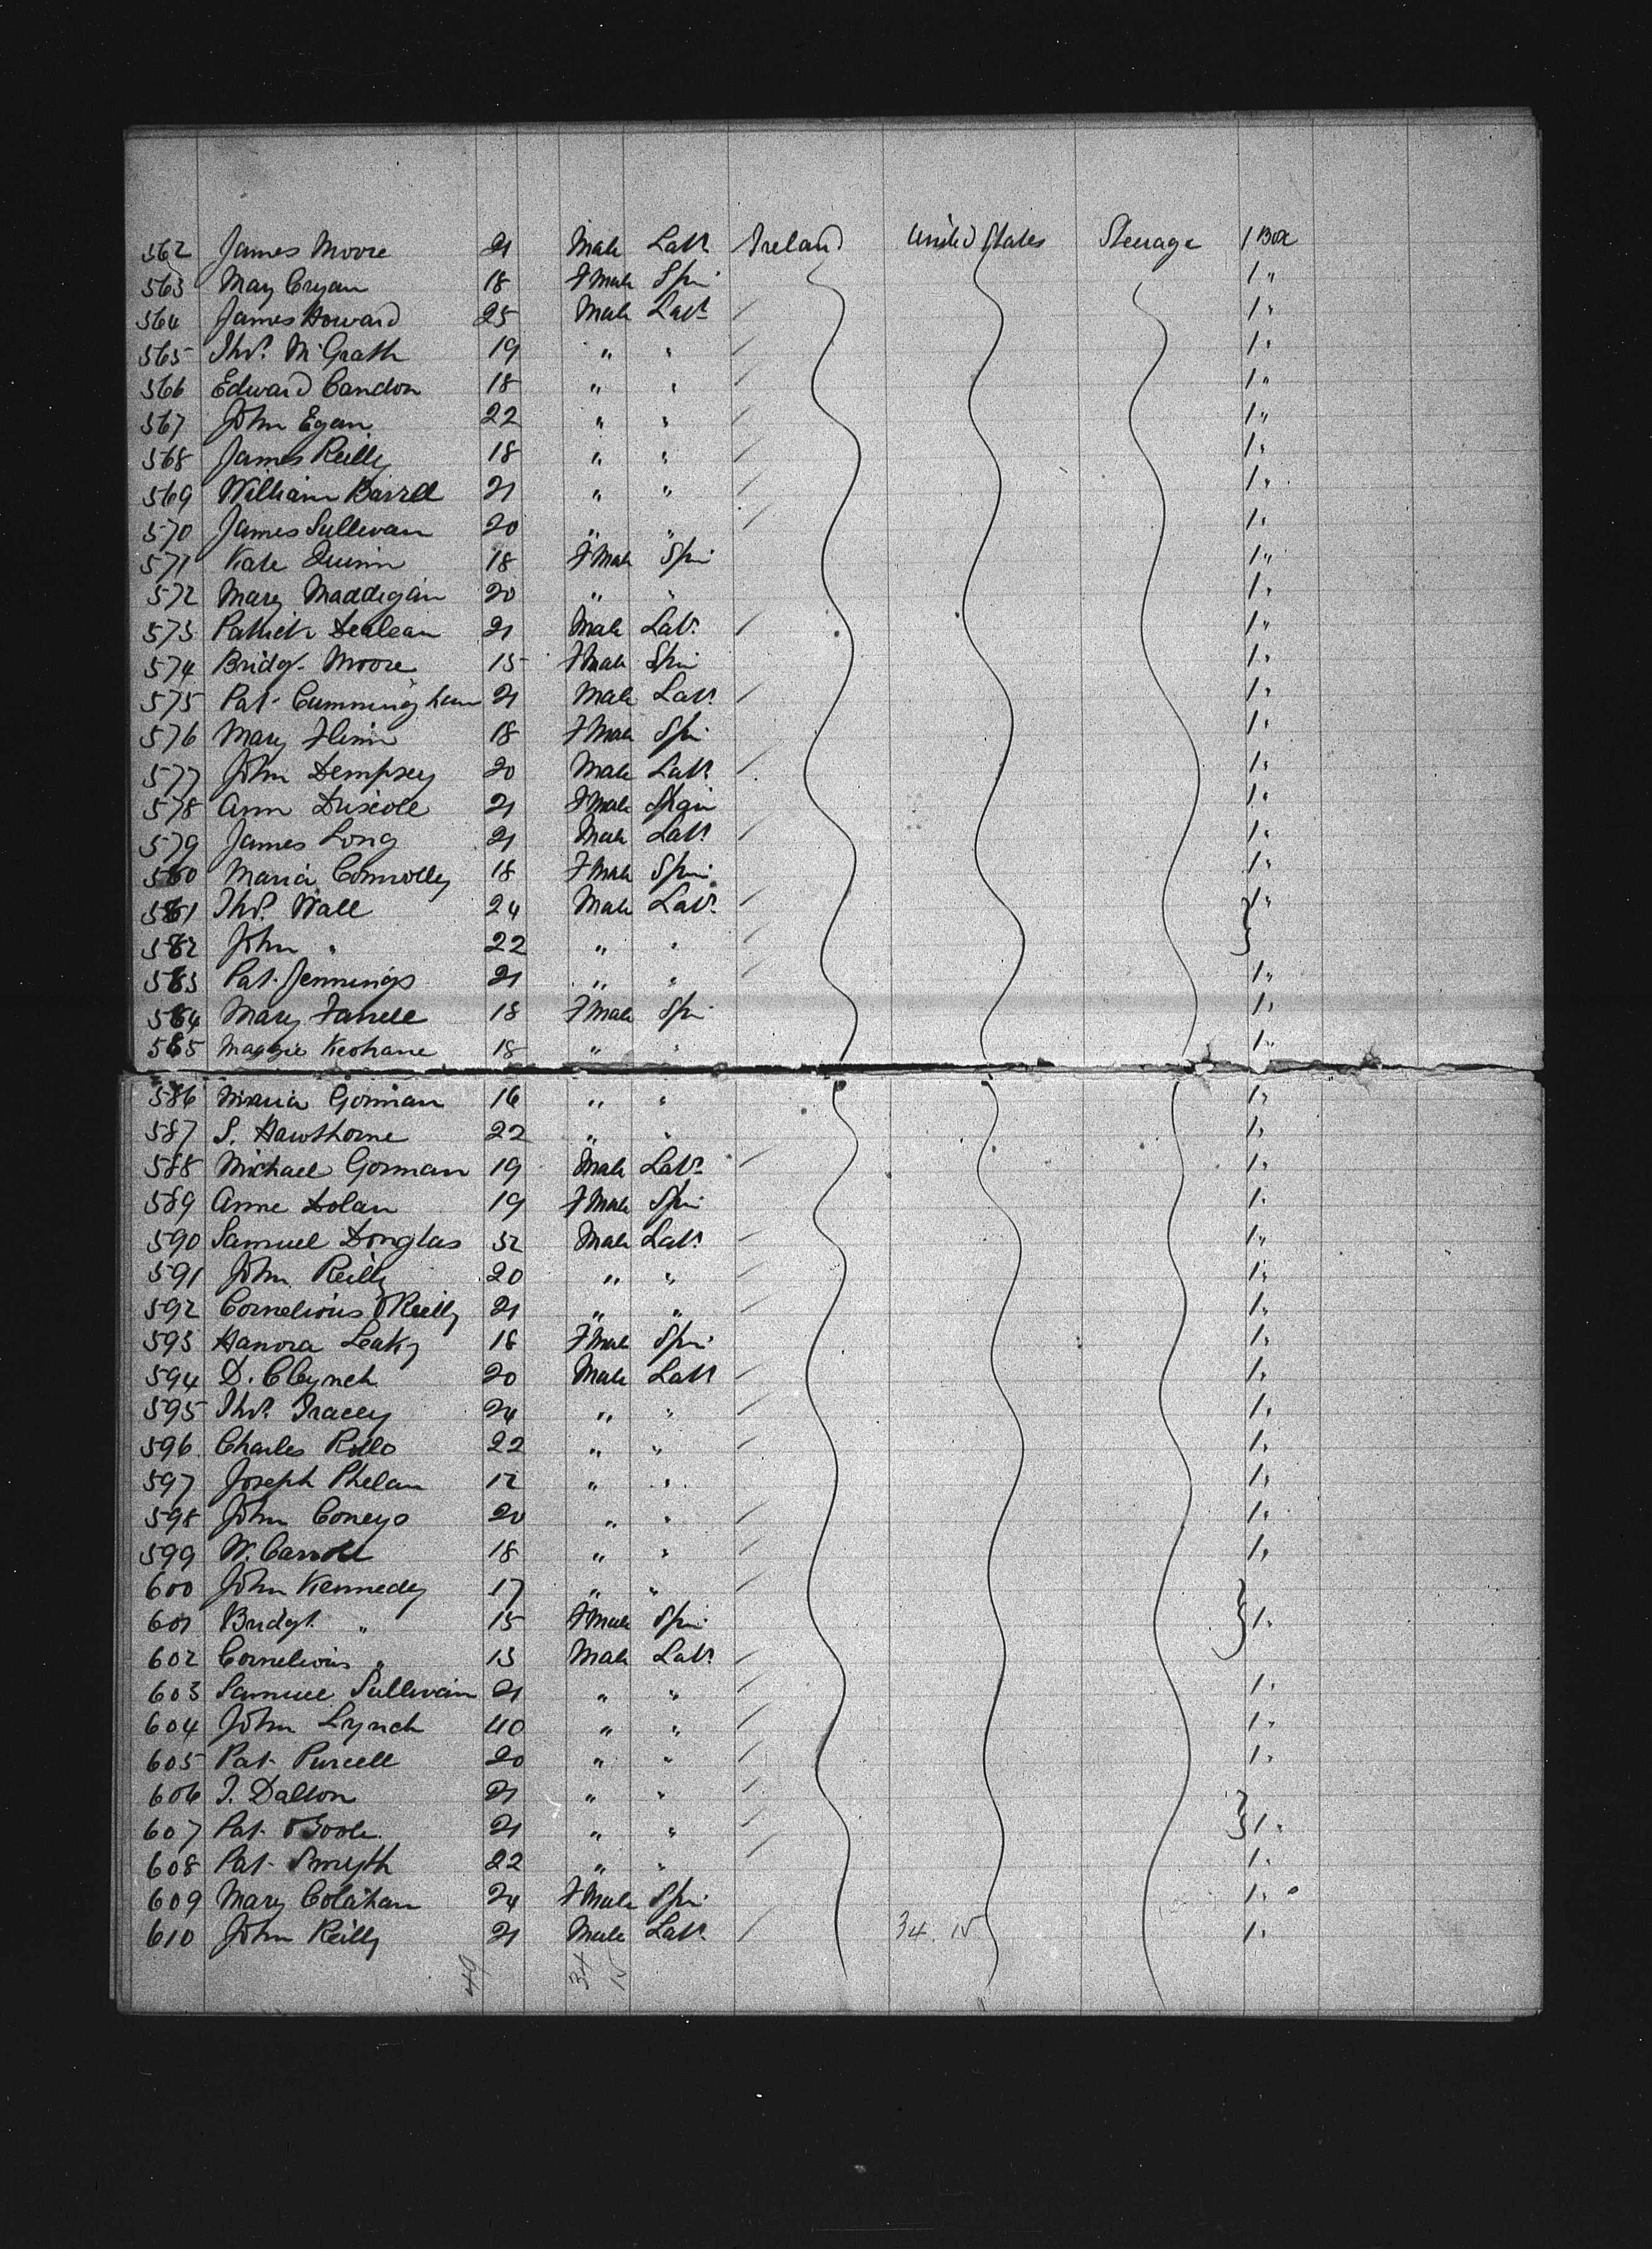 562 James Moore 21 Male Labr Ireland United States Steerage 1 Box
563 Mary Cryan 18 Fmale Spin 1 "
564 James Howard 25 Male Labr 1 "
565 Thos McGrath 19 " " 1 "
566 Edward Candon 18 " " 1 "
567 John Egan 22 " " 1 "
568 James Reilly 18 " " 1 "
569 William 21 " " 1 "
570 James Sullivan 20 " " 1 "
571 Kate Quinn 18 Fmale Spin 1 "
572 Mary Maddigan 20 " " 1 "
573 Patrick 21 Male Labr 1 "
574 Bridgt Moore 15 Fmale Spin 1 "
575 Pat Cunningham 21 Male Labr 1 "
576 Mary Flinn 18 Fmale Spin 1 "
577 John Dempsey 20 Male Labr 1 "
578 Ann Driscoll 21 Fmale 1 "
579 James Long 21 Male Labr 1 "
580 Maria Connolly 18 Fmale Spin 1 "
581 Thos Wall 24 Male Labr 1 "
582 John " 22 " "
583 Pat Jennings 21 " " 1 "
584 Mary Farrell 18 Fmale Spin 1 "
585 Maggie Keohane 18 " " 1 "
586 Maria Gorman 16 " " 1 "
587 S. Hawthorne 22 " " 1 "
588 Michael Gorman 19 Male Labr 1 "
589 Anne Dolan 19 Fmale Spin 1 "
590 Samuel Douglas 32 Male Labr 1 "
591 John Reilly 20 " " 1 "
592 Cornelious O'Reilly 21 " " 1 "
593 Hanora Leahy 18 Fmale Spin 1 "
594 D. 20 Male Labr 1 "
595 Thos Tracey 24 " " 1 "
596 Charles Rollo 22 " " 1 "
597 Joseph Phelan 12 " " 1 "
598 John Coneys 20 " " 1 "
599 W. Carroll 18 " " 1 "
600 John Kennedy 17 " "
601 Bridgt " 15 Fmale Spin 1 "
602 Cornelious " 13 Male Labr
603 Samuel Sullivan 21 " " 1 "
604 John Lynch 40 " " 1 "
605 Pat Purcell 20 " " 1 "
606 J. Dalton 21 " "
607 Pat O'Toole 21 " " 1 "
608 Pat Smyth 22 " " 1 "
609 Mary Colahan 24 Fmale Spin 1 "
610 John Reilly 21 Male Labr 34. 15 1 "
49 34 15